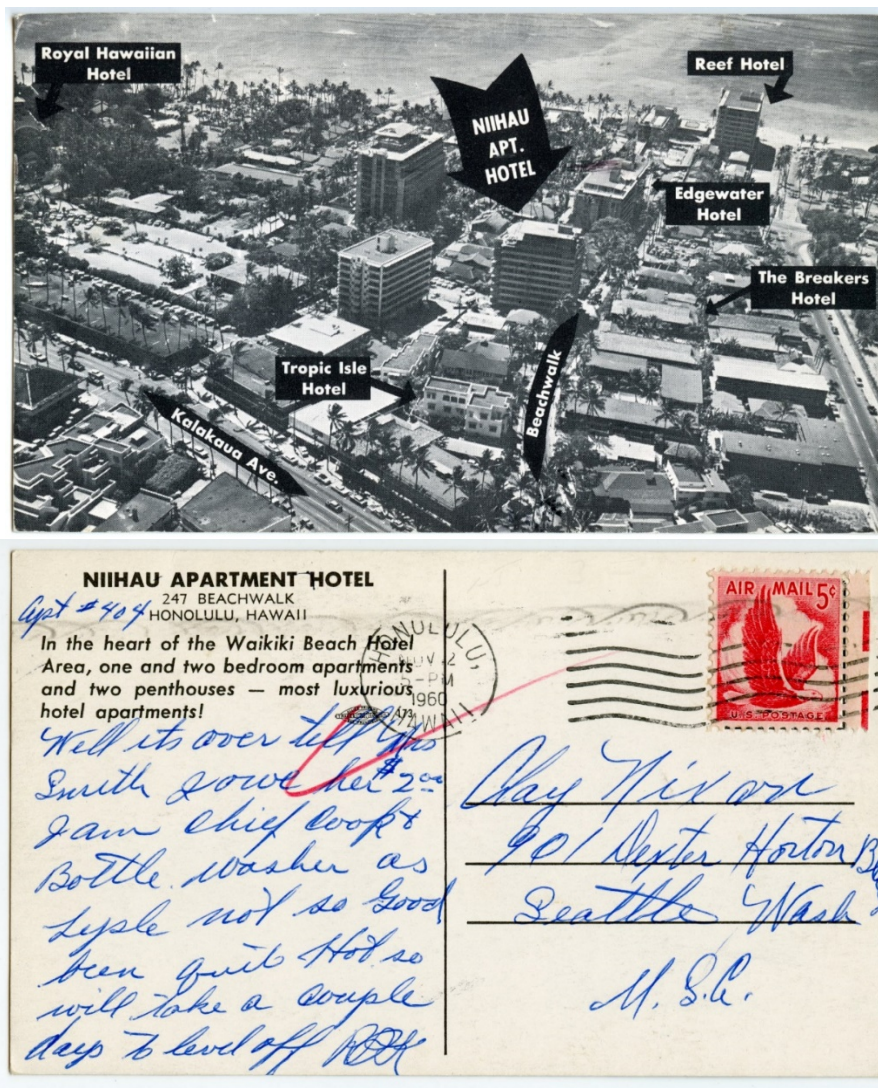 Royal Hawaiian
Hotel
NIIHAU
APT.
HOTEL
Reef Hotel
Edgewater
Hotel
The Breakers
Hotel
Tropic Isle
Hotel
Beachwalk
Kalakaua Ave.
NIIHAU APARTMENT HOTEL
247 BEACHWALK
HONOLULU, HAWAII
Apt #404
In the heart of the Waikiki Beach Hotel
Area, one and two bedroom apartments
and two penthouses — most luxurious
hotel apartments!
Well its over tell Mrs
Smith I owe her $2.00
I am chief Cook &
Bottle washer as
Lysle not so Good
been quit Hot so
will take a couple
days to level off
HONOLULU,
NOV 2
5-PM
1960
HAWAII
AIR MAIL 5¢
U.S. POSTAGE
Clay Nixon
901 Dexter Horton
Seattle Wash